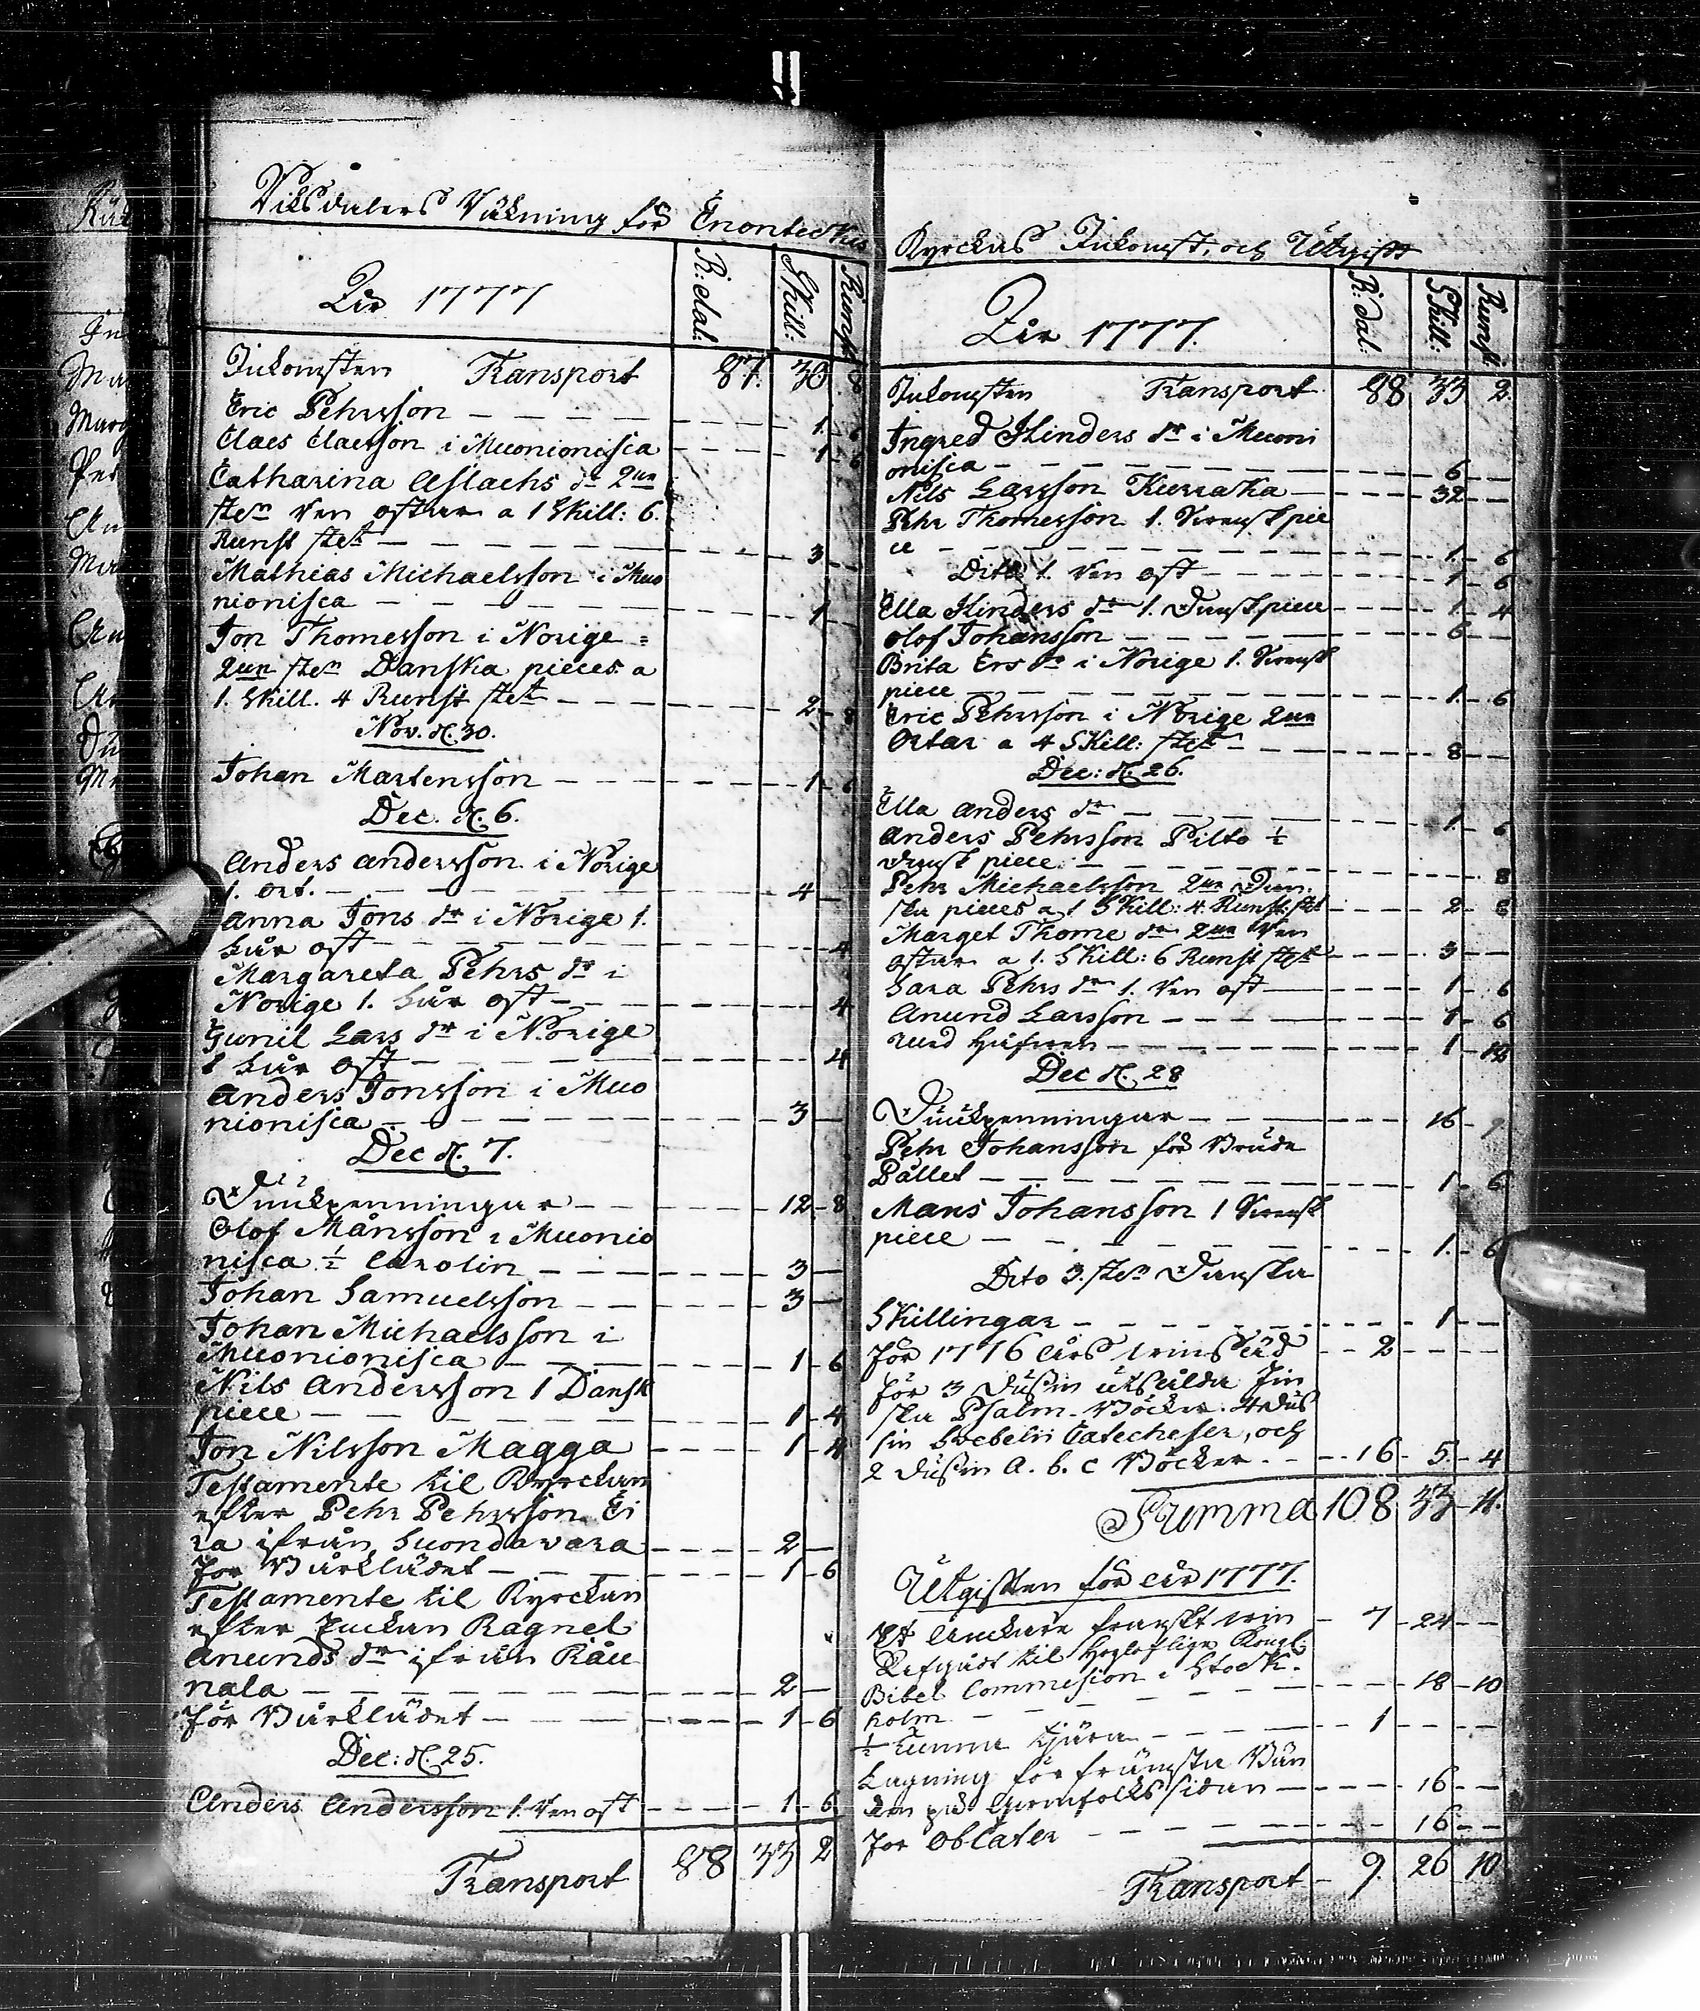 Riksdalers Räkning för Enontekis
År 1777
R: dal: Skill: Runst:
Inkomsten Transport 87. 30
Eric Pehrsson 1 6
Claes Claesson i Muonionisca 1 6
Catharina Aslachs dr 2ne
sten Ren ostar a 1 Skill: 6
Runst stet 3
Mathias Michaelsson i Muo
nionisca 1
Jon Thomesson i Norige
2ne sten Danska pieces a
1. Skill. 4 Runst stet 2 8
Nov. d. 30.
Johan Martensson 1 6
Dec. d. 6.
Anders Andersson i Norige
1. ort. 4
Anna Jons dr i Norige 1.
får ost 4
Margareta Pehrs dr i
Norige 1. får ost 4
Gunil Lars dr i Norige
1 får ost 4
Anders Jonsson i Muo
nionisca 3
Dec d. 7.
12 8
Olof Månsson i Muonio
nisca ½ Carolin 3
Johan Samuelsson 3
Johan Michaelsson i
Muonionisca 1 6
Nils Andersson 1 Dansk
piece 1 4
Jon Nilsson Magga 1 4
Testamente til Kyrckan
efter Pehr Pehrsson Ei
ra ifrån Suondavara 2
för Bårklädet 1 6
Testamente til Kyrckan
efter Enckan Ragnel
Anunds dr ifrån Råu
nala 2
för Bårklädet 1 6
Dec: d. 25.
Anders Andersson 1. Ren ost 1 6
Transport 88 33 2
Kyrckas Inkomst, och Utgift
År 1777.
R: dal: Skill: Runst:
Inkomsten Transport 88 33 2
Ingred Hinders dr i Muoni
onisca 6
Nils Larsson Kurraka 32
Pehr Thomesson 1. Svensk pie
ce 1 6
Dito 1. Ren ost 1 6
Ella Hinders dr 1. Dansk piece 1 4
Olof Johansson 6
Brita Ers dr i Norige 1. Svensk
piece 1. 6
Eric Pehrsson i Norige 2ne
Ortar a 4 Skill: stet 8
Dec: d. 26.
Ella Anders dr 1 6
Anders Pehrsson Pilto ½
Dansk piece 8
Pehr Michaelsson 2ne Dan
ska pieces a 1 Skill: 4 Runst: stet 2 8
Marget Thome dr 2ne Ren
ostar a 1. Skill: 6 Runst stet 3
Sara Pehrs dr 1. Ren ost 1 6
Anund Larsson 1 6
med Håfven 1
Dec d. 28
16
Pehr Johansson för Brude
Pället 1 6
Mans Johansson 1 Svensk
piece 1. 6
Dito 3. sten Danska
Skillingar 1
för 1776 års winsäd 2
för 3 Dusin utsålda Fin
ska Psalm-Böcker. 4 Dus
sin Svebelii Catecheser, och
2 Dusin A. b. c Böcker 16 5 4
Summa 108 33 11.
Utgiften för år 1777.
Et Anckare franskt win 7 24
til Högloflige Kongl.
Bibel Commission i Stock-
holm 18 10
½ Tunna tjära 1
Lagning för främsta Bän
ken på qwinfolks sidan 16
för Oblater 16
Transport 9. 26 10